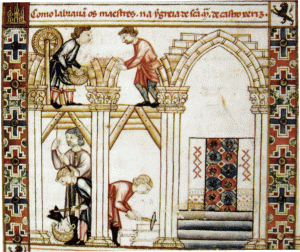 Como labrauã os maestres. na ygreia de scã mª. de castro xeriz.